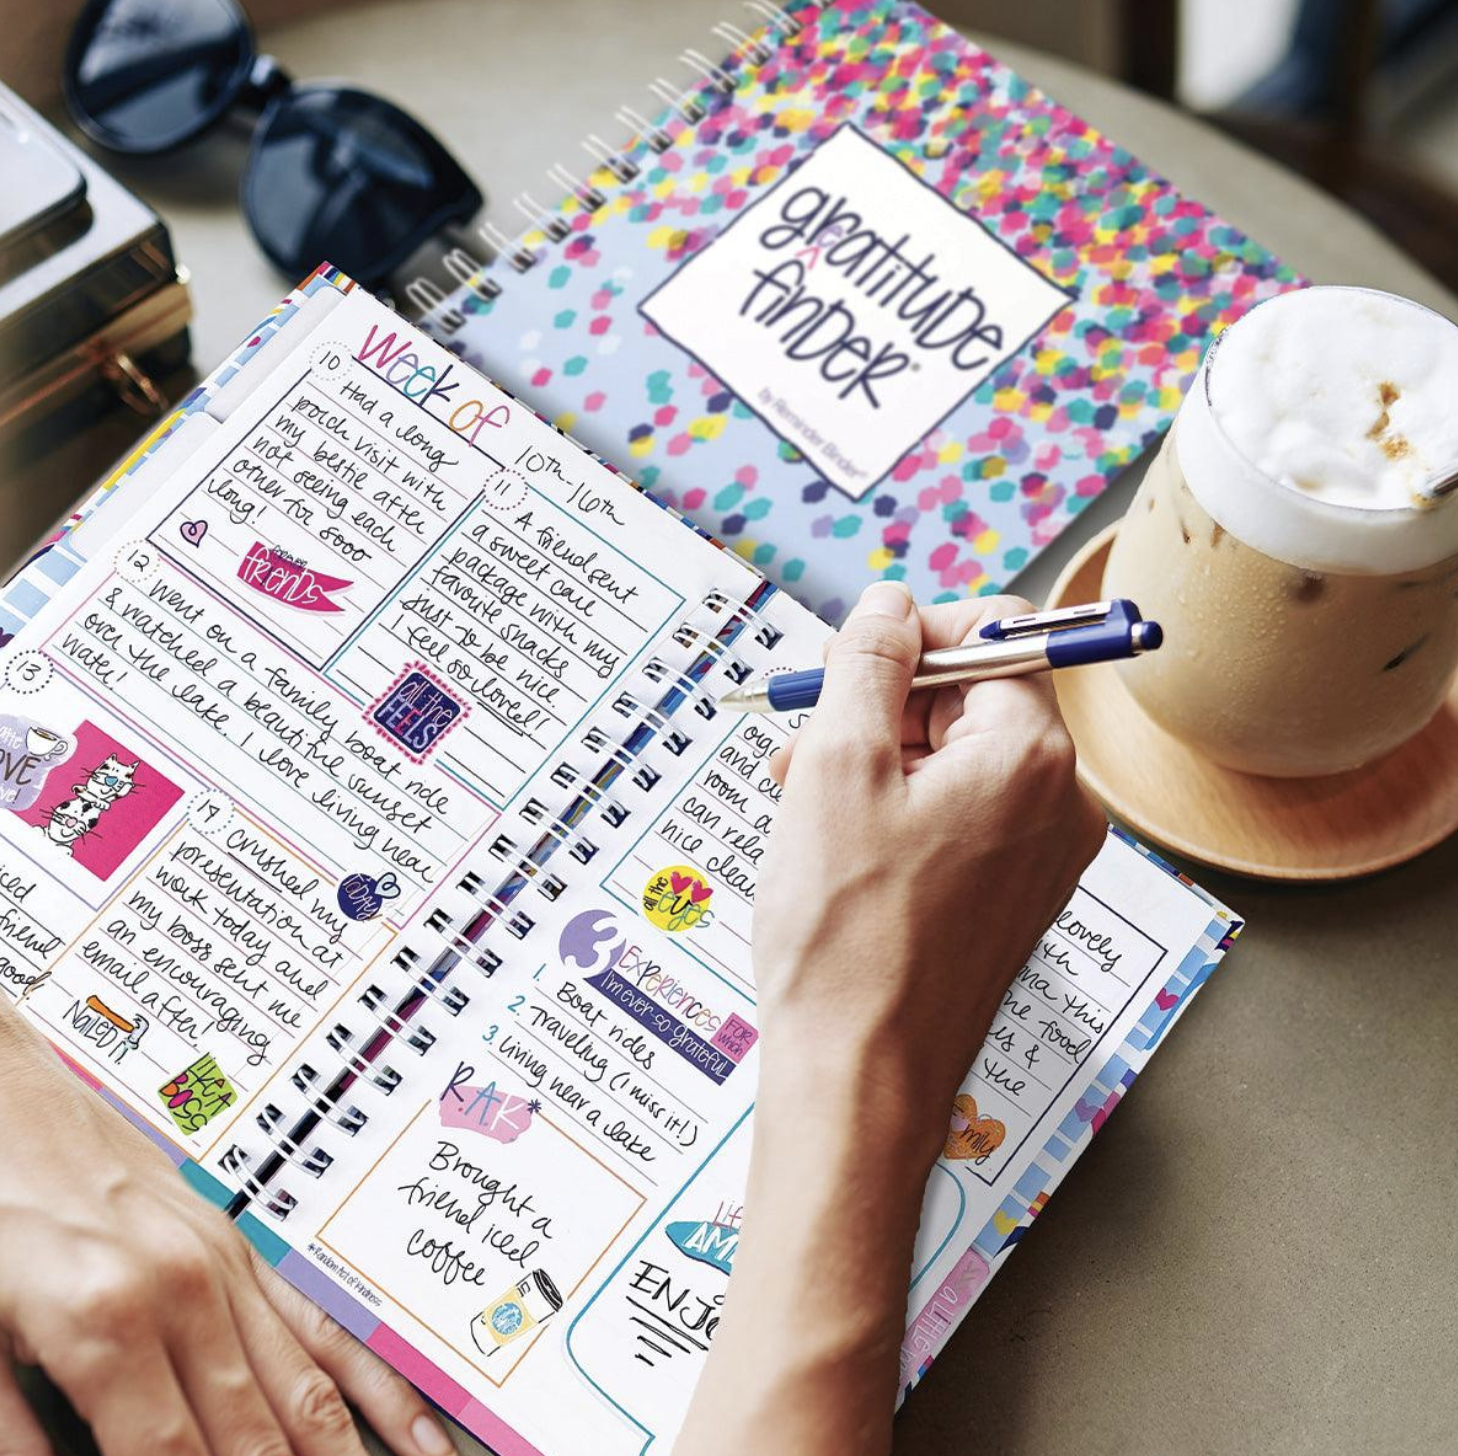 gratitude
e
finder®
by Reminder Binder®
Week of
10th-16th
10
Had a long
porch visit with
my bestie after
not seeing each
other for sooo
long!
forever
friends
11
A friend sent
a sweet care
package with my
favorite snacks
just to be nice.
I feel so loved!
all the
FEELS
12
Went on a family boat ride
& watched a beautiful sunset
over the lake. I love living near
water!
today
13
iced
friend
good
14
Crushed my
presentation at
work today and
my boss sent me
an encouraging
email after!
NAILED it
LIKE A
BOSS
and
room
can rela
nice clean
all the
eyes
3 Experiences
I'm ever-so-grateful
FOR
which
1. Boat rides
2. Traveling (I miss it!)
3. Living near a lake
R.A.K*
Brought a
friend iced
coffee
*Random Act of Kindness
lovely
this
food
us &
the
mily
ENJO
a little